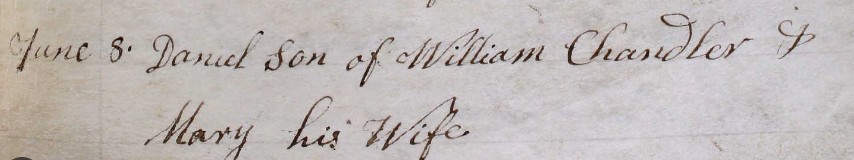 June 8. Daniel Son of William Chandler &
Mary his Wife